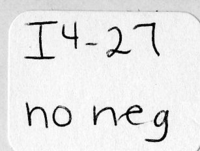 I4-27
no neg